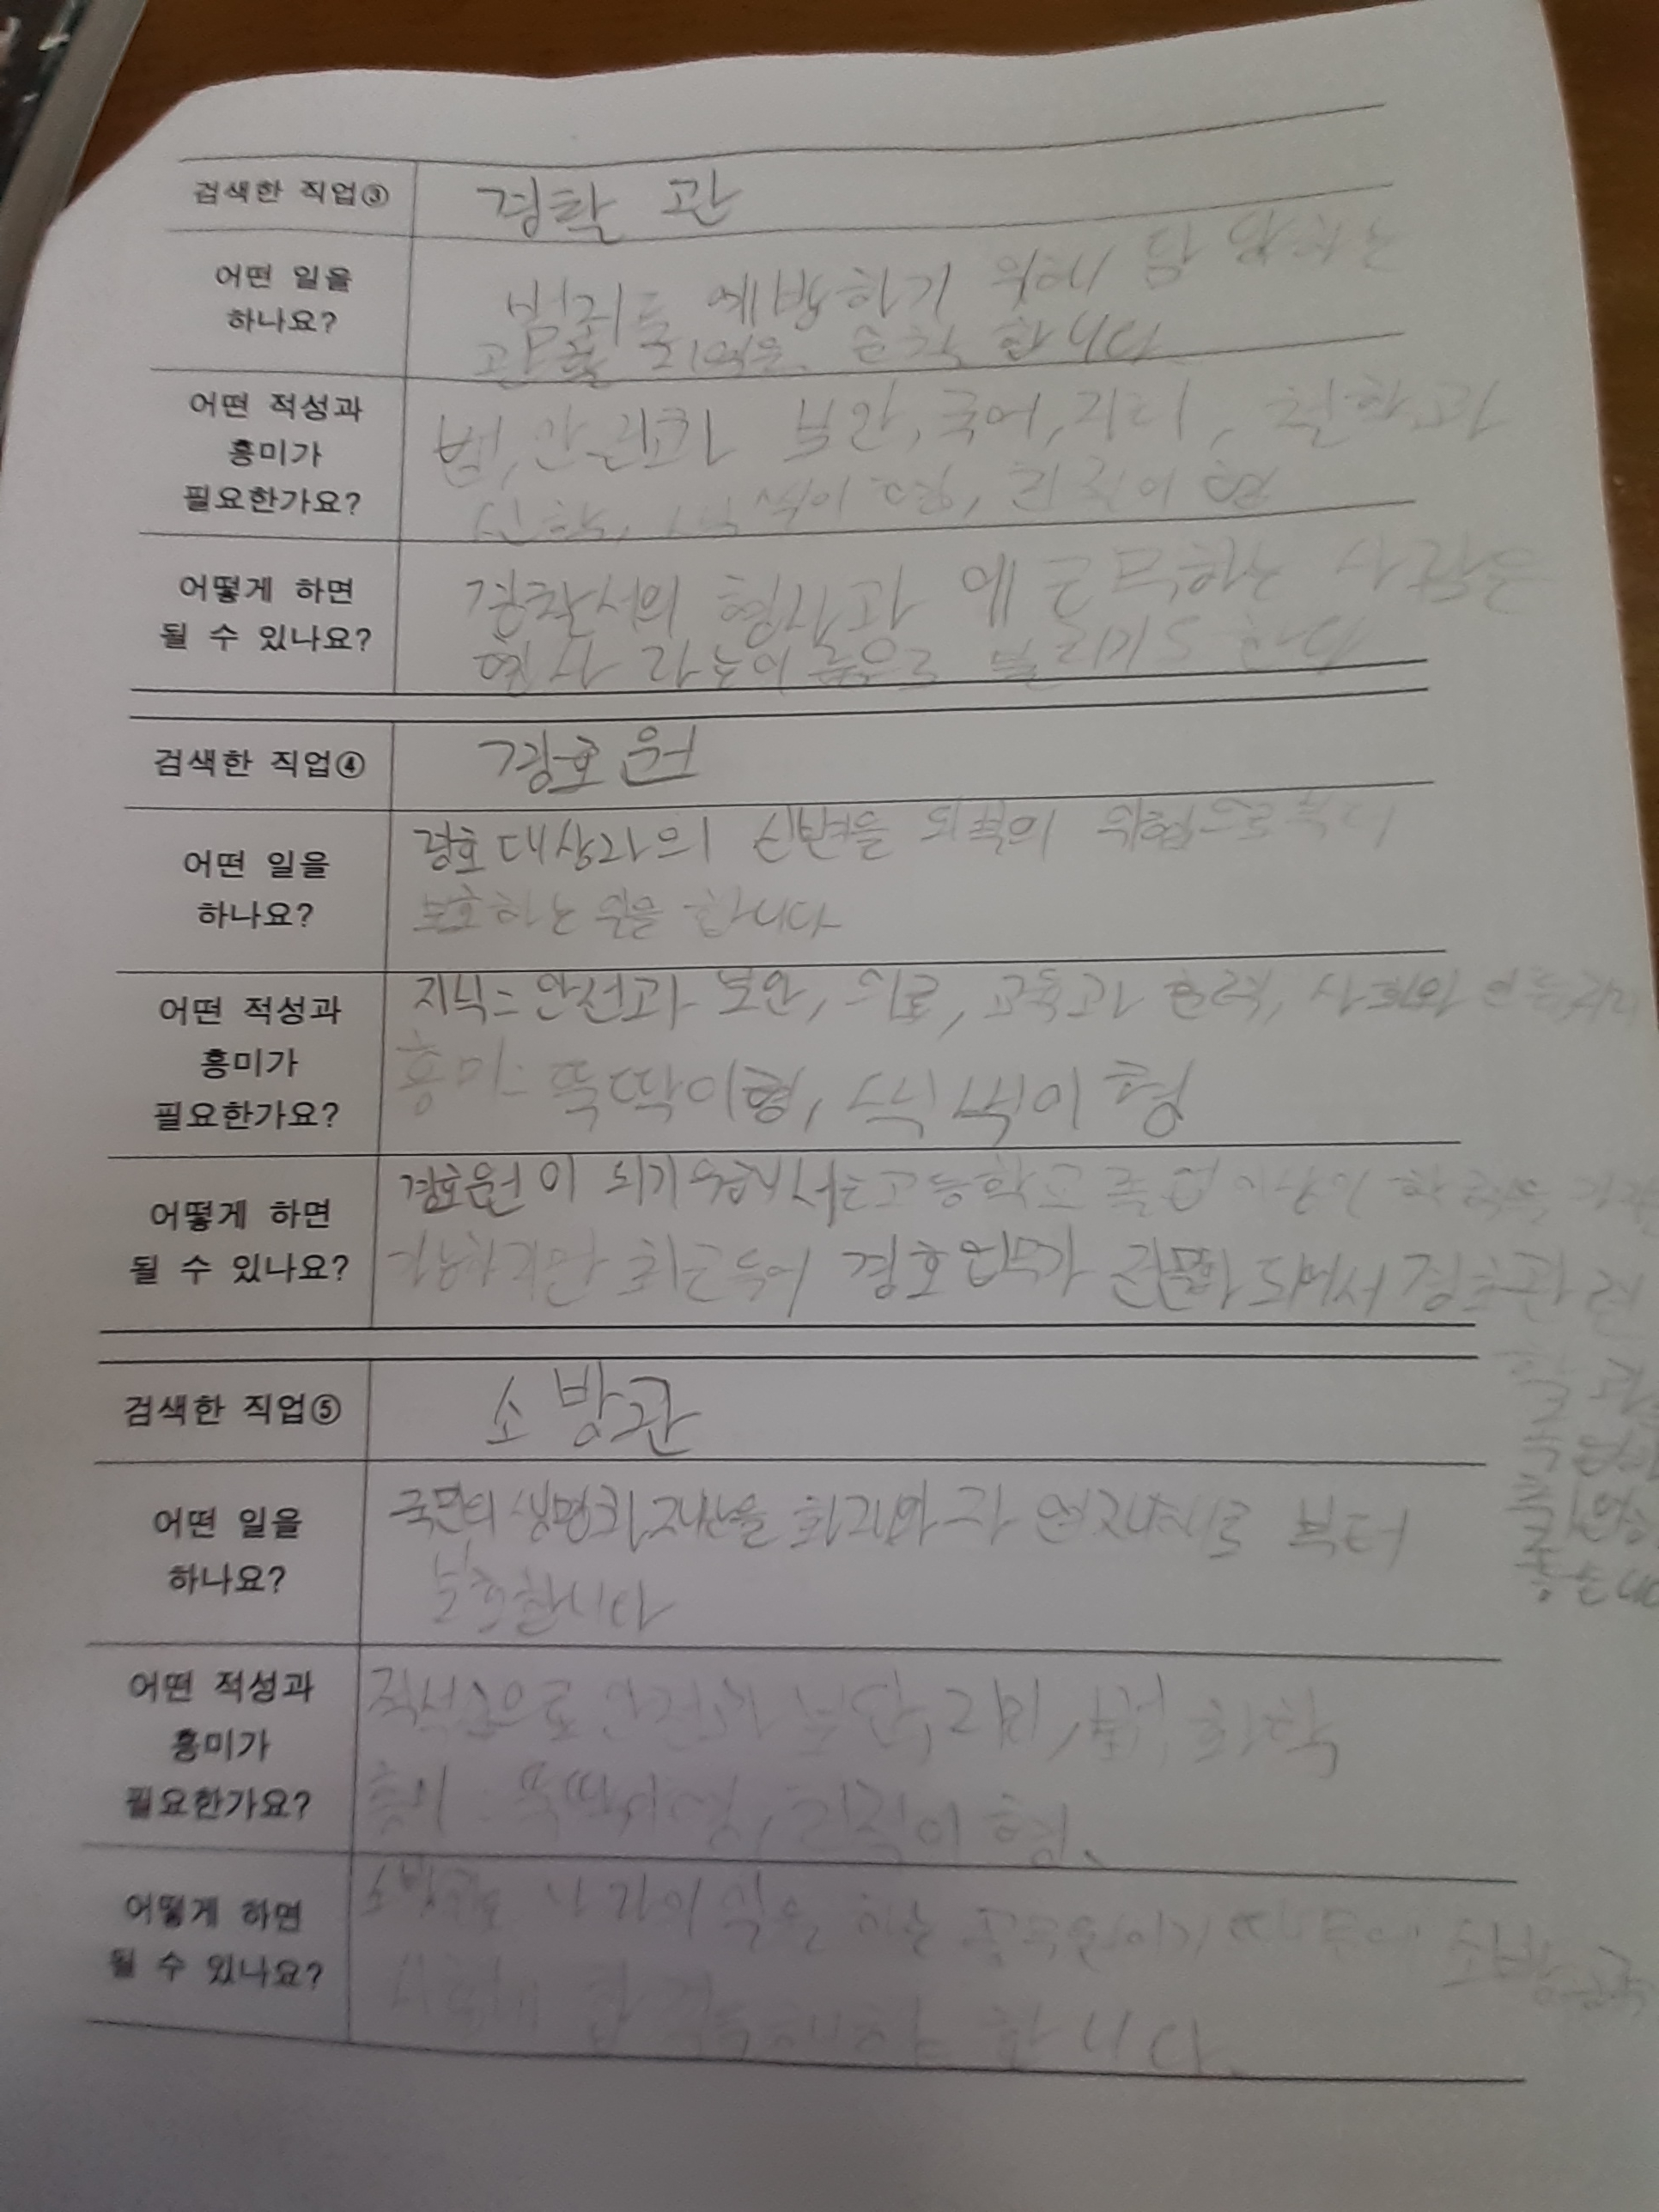 검색한 직업③
경찰 관
어떤 일을
하나요?
범죄를 예방하기 위해 담당하는
관할 지역을 순찰 합니다
어떤 적성과
흥미가
필요한가요?
법, 안전과 보안, 국어, 지리, 철학과
신학,
어떻게 하면
될 수 있나요?
경찰서의 형사과 에 근무하는 사람은
형사 라는 이름으로 불리기도 한다
검색한 직업④
경호원
어떤 일을
하나요?
경호대상자의 신변을 외부의 위험으로부터
보호하는 일을 합니다
어떤 적성과
흥미가
필요한가요?
지식=안전과 보안, 의료, 교육과 훈련, 사회와 인류
흥미- 뚝딱이형, 씩씩이형
어떻게 하면
될 수 있나요?
경호원이 되기 위해서는 고등학교 졸업 이상의 학력을
가능하지만 최근들어 경호업무가 전문화 되어서 경호관련
검색한 직업⑤
소방관
어떤 일을
하나요?
국민의 생명과 재산을 화재와 자연재해로 부터
보호합니다
어떤 적성과
흥미가
필요한가요?
안전과 보안, 법, 화학
흥미- 뚝딱이형,
어떻게 하면
될 수 있나요?
소방관은 국가의 일을 하는 공무원이기 때문에 소방공무
합격해야 합니다.